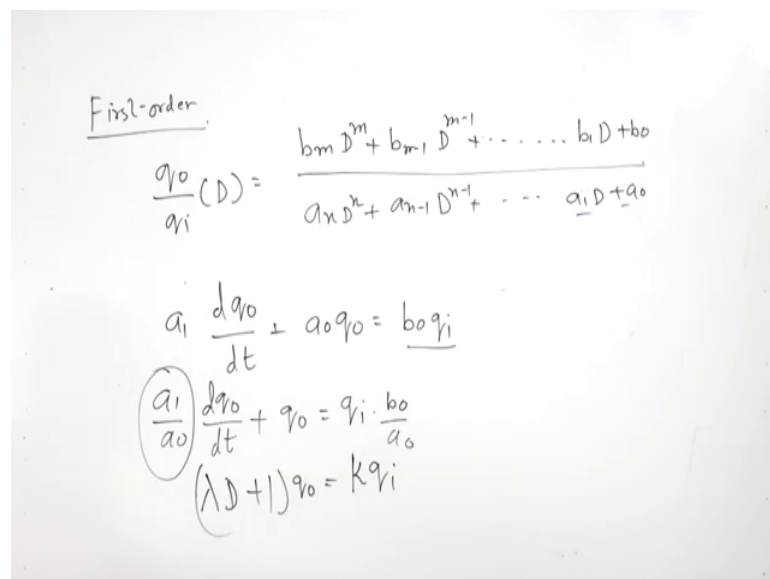 First-order
qo/qi (D) = (bm D^m + bm-1 D^m-1 + ....... b1 D + bo) / (an D^n + an-1 D^n-1 + ... a1 D + ao)
a1 dqo/dt + ao qo = bo qi
a1/ao dqo/dt + qo = qi · bo/ao
(λD + 1) qo = K qi